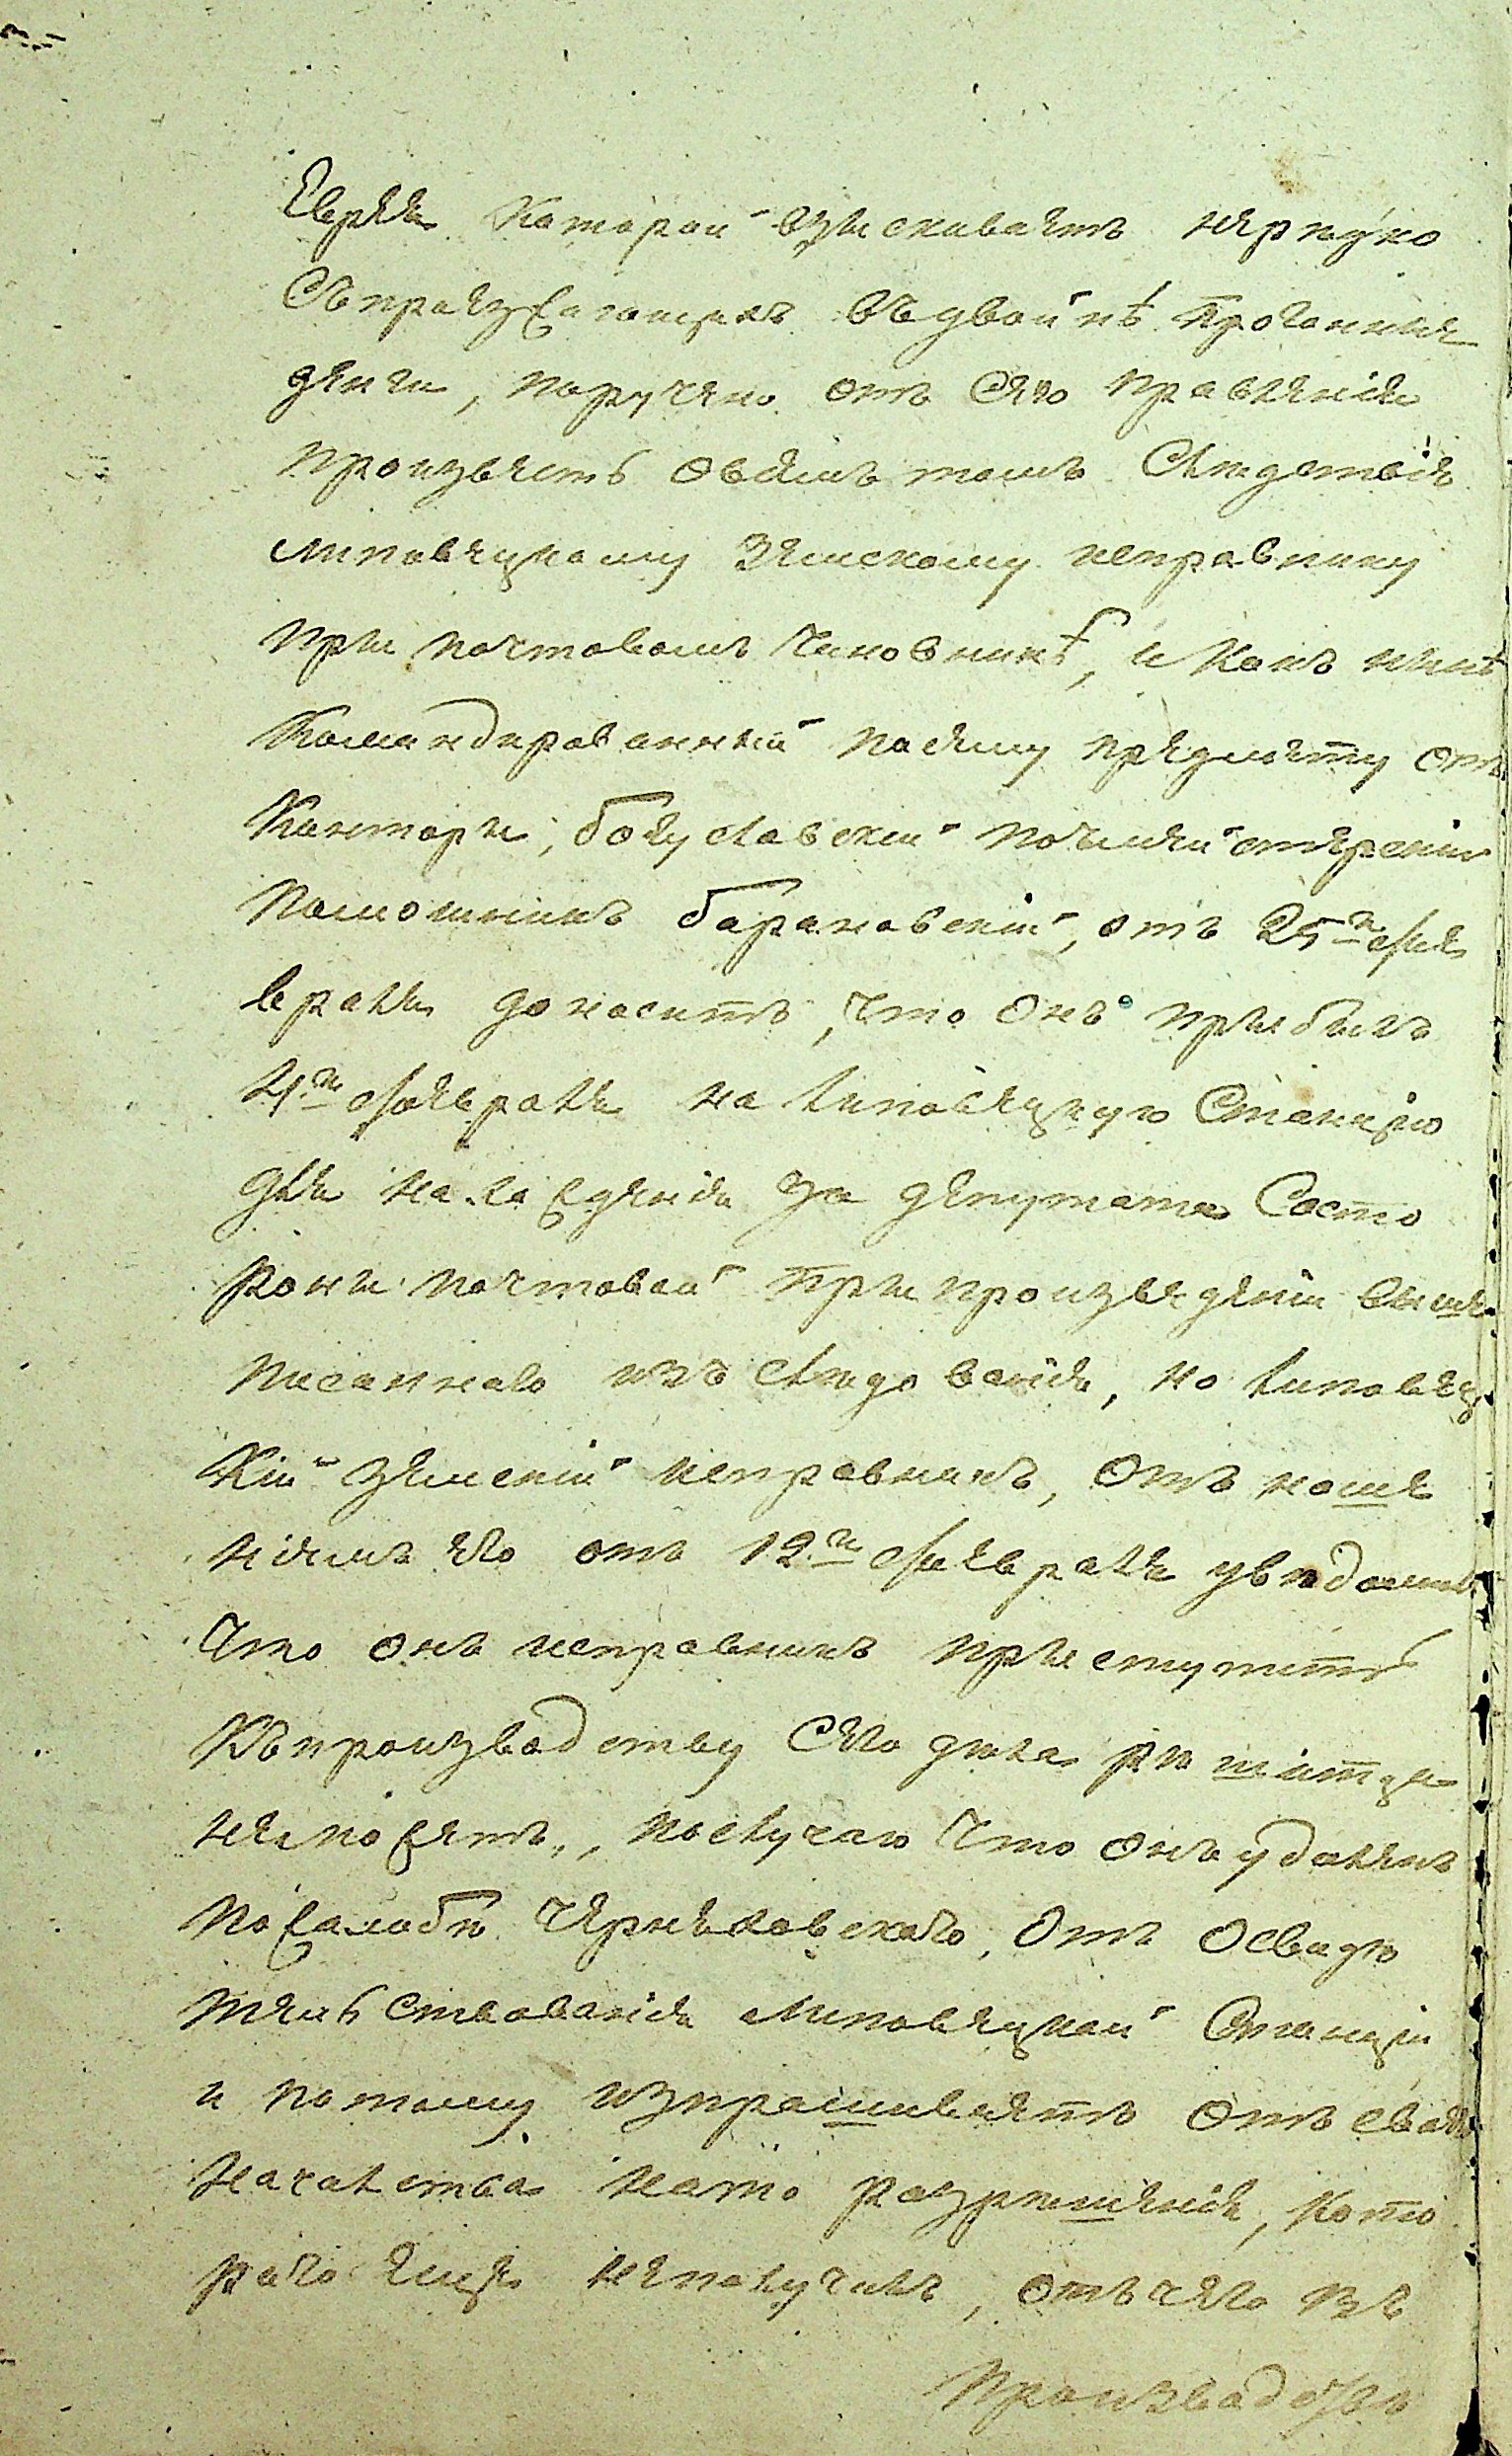 Еврея которой взыскиваетъ нерѣдко
Съпроезжающихъ въдвойнѣ прогонные
денги, поручено отъ Сего правленія
произвесть овсемъ томъ Слѣдствіе
липовецкому Земскому исправнику
при почтовомъ чиновникѣ, и какъ нынѣ
Командированный посему предмету отъ
Конторы, богуславскій почмейстерскій
помошникъ барановскій, отъ 25го фев
враля доноситъ, что онъ прибылъ
4го февраля на липовецкую Станцію
для нахожденія за депутата Состо
роны почтовой при произведеніи выше
писаннаго изъ слѣдованія, но липовец
кій земскій исправникъ, отъ ноше
ніемъ его отъ 12го февраля увѣдомилъ
Что онъ исправникъ приступить
Къпроизводству Сего дела рѣшится
неможетъ, послучаю Что онъ удаленъ
пожалобѣ Черняховскаго, отъ освидѣ
тельствованія липовецкой Станціи
и потому изпрашиваетъ отъ своего
началства нато разрѣшенія, кото
раго еще неполучилъ, отъ чего въ
производствѣ